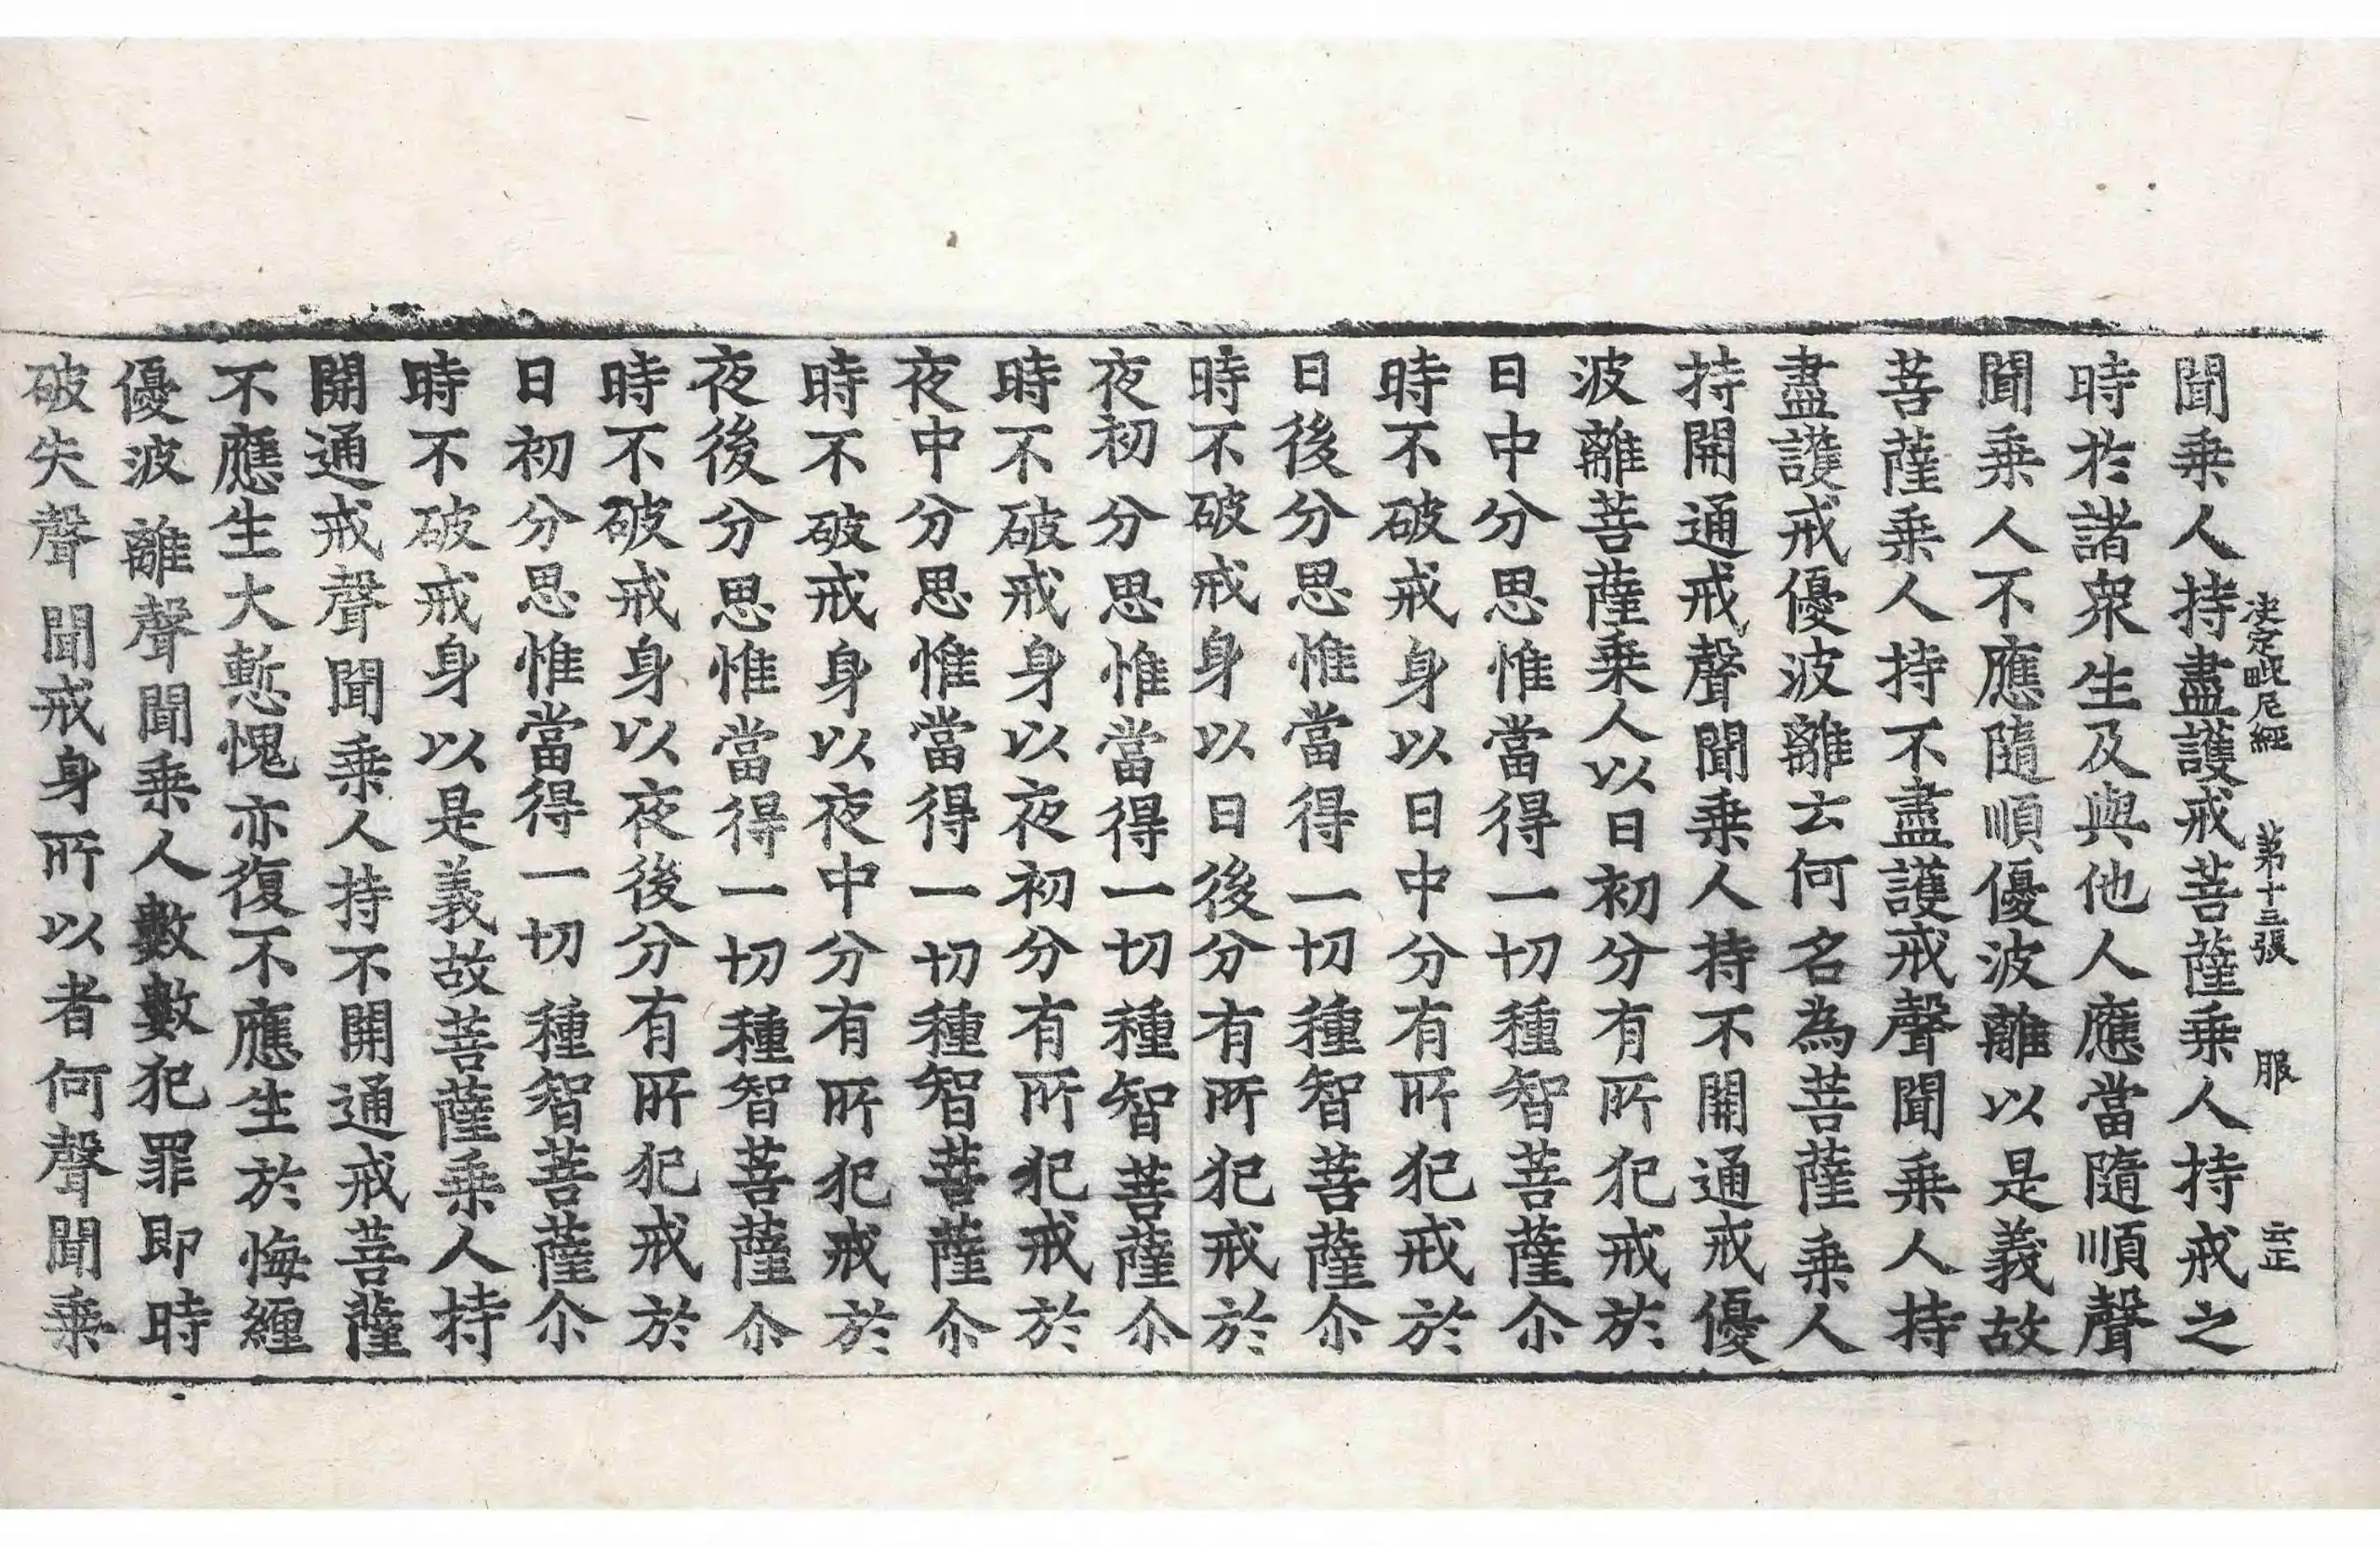 聞乗人持盡護戒菩薩乗人持戒之
決定毗尼經 第十三張 服
時於諸衆生及與他人應當隨順聲
聞乗人不應隨順優波離以是義故
菩薩乗人持不盡護戒聲聞乗人持
盡護戒優波離云何名為菩薩乗人
持開通戒聲聞乗人持不開通戒優
波離菩薩乗人以日初分有所犯戒於
日中分思惟當得一切種智菩薩尒
時不破戒身以日中分有所犯戒於
日後分思惟當得一切種智菩薩尒
時不破戒身以日後分有所犯戒於
夜初分思惟當得一切種智菩薩尒
時不破戒身以夜初分有所犯戒於
夜中分思惟當得一切種智菩薩尒
時不破戒身以夜中分有所犯戒於
夜後分思惟當得一切種智菩薩尒
時不破戒身以夜後分有所犯戒於
日初分思惟當得一切種智菩薩尒
時不破戒身以是義故菩薩乗人持
開通戒聲聞乗人持不開通戒菩薩
不應生大慙愧亦復不應生於悔纏
優波離聲聞乗人數數犯罪即時
破失聲聞戒身所以者何聲聞乗